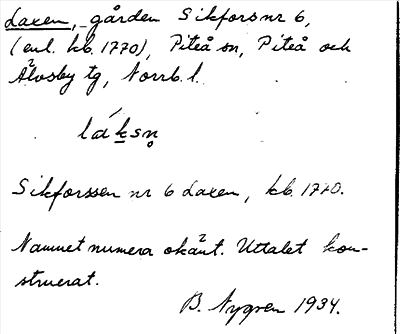 Laxen, gården Sikforsnr 6,
(enl. kb. 1770), Piteå sn, Piteå och
Älvsby tg, Norrb. l.
láksn̥
Sikforssen nr 6 Laxen, kb. 1770.
Namnet numera okänt. Uttalet kon-
struerat.
B. Nygren 1934.